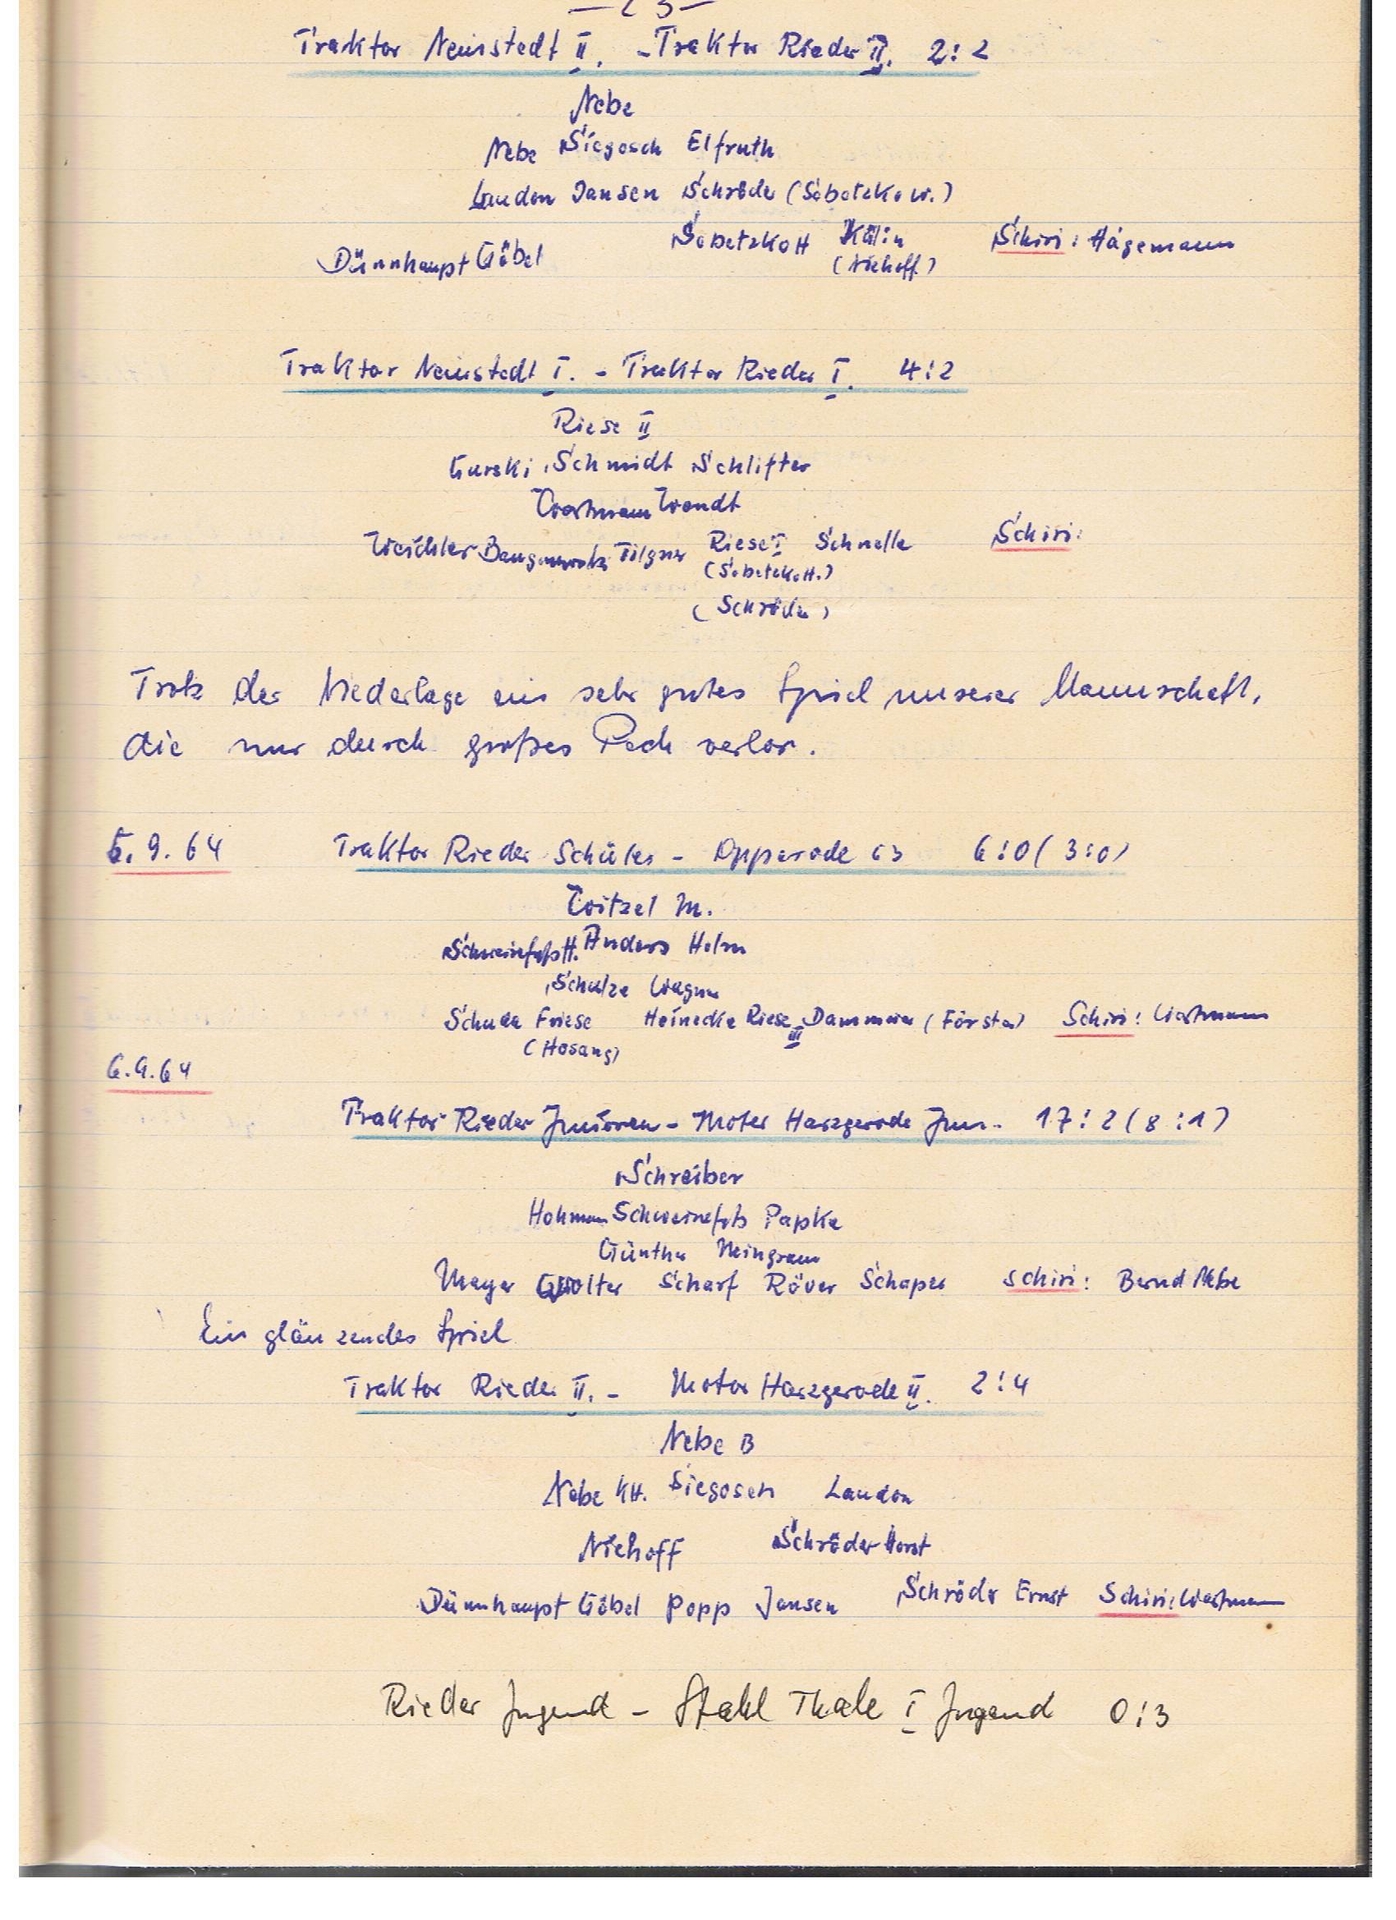 — 23 —
Traktor Neinstedt II. - Traktor Rieder II. 2:2
Nebe
Nebe Siegosch Elfruth
Laudon Jansen Schröder (Sobetzko W.)
Dünnhaupt Göbel Sobetzko H Kölin Schiri: Hagemann
(Niehoff)
Traktor Neinstedt I. - Traktor Rieder I. 4:2
Riese II
Gurski Schmidt Schlifter
Wendt
Weichler Tilgner Riese I Schnelle Schiri:
(Sobetzko H.)
(Schröder)
Trotz der Niederlage ein sehr gutes Spiel unserer Mannschaft,
die nur durch großes Pech verlor.
5.9.64 Traktor Rieder Schüler - Opperode 63 6:0 (3:0)
Witzel M.
H. Anders Helm
Schulze Wagner
Schuda Friese Heinecke Riese III Dammeier (Förster) Schiri:
(Hosang)
6.9.64
Traktor Rieder Junioren - Motor Harzgerode Jun. 17:2 (8:1)
Schreiber
Hohmann Papke
Günther Meingram
Meyer Wolter Scharf Röver Schaper Schiri: Bernd Nebe
Ein glänzendes Spiel
Traktor Rieder II. - Motor Harzgerode II. 2:4
Nebe B
Nebe KH. Siegosch Laudon
Niehoff Schröder Horst
Dünnhaupt Göbel Popp Jansen Schröder Ernst Schiri:
Rieder Jugend - Stahl Thale I Jugend 0:3